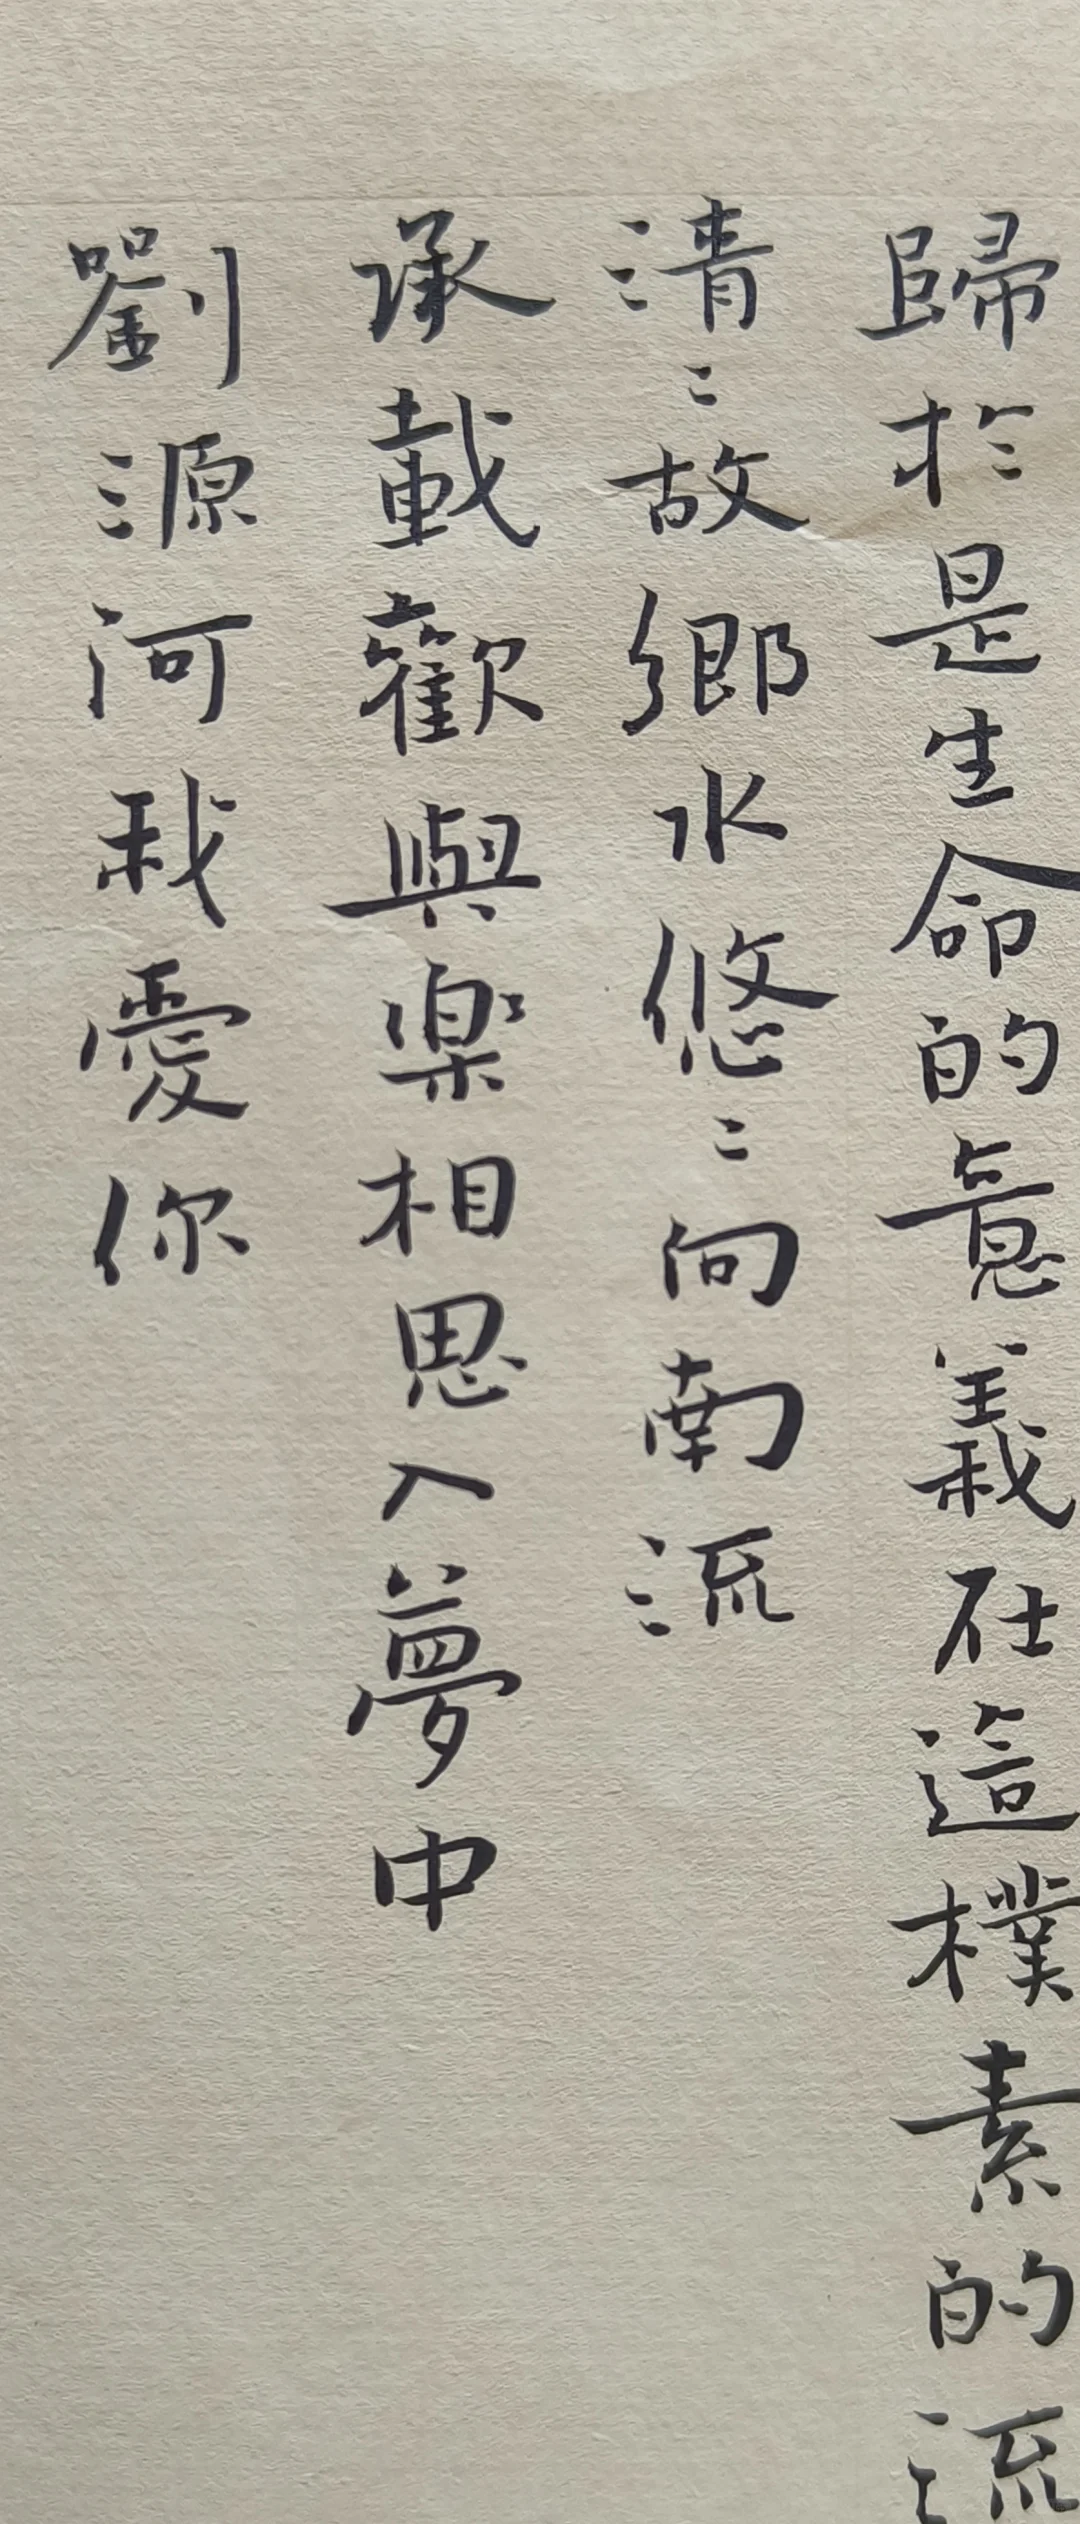 歸於是生命的意義在這樸素的流
清〻故鄉水悠〻向南流
承載歡與樂相思入夢中
劉源河我愛你